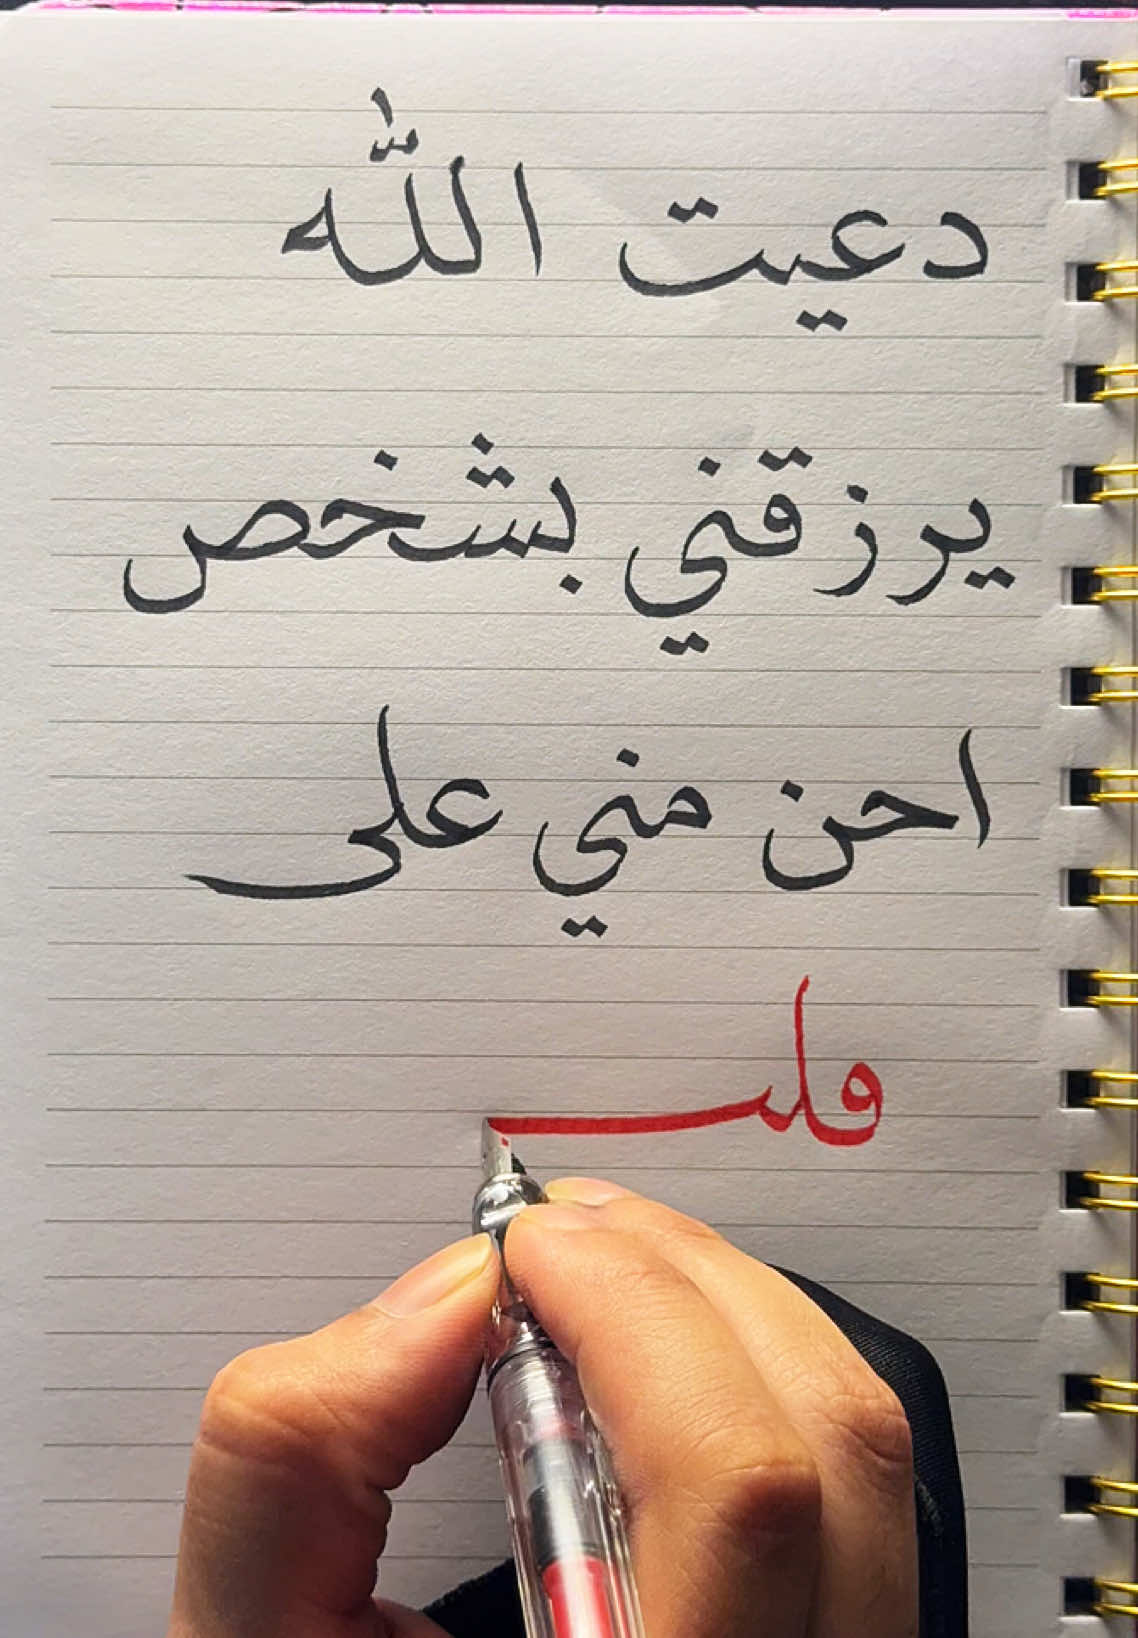 دعيت الله
يرزقني بشخص
احن مني على